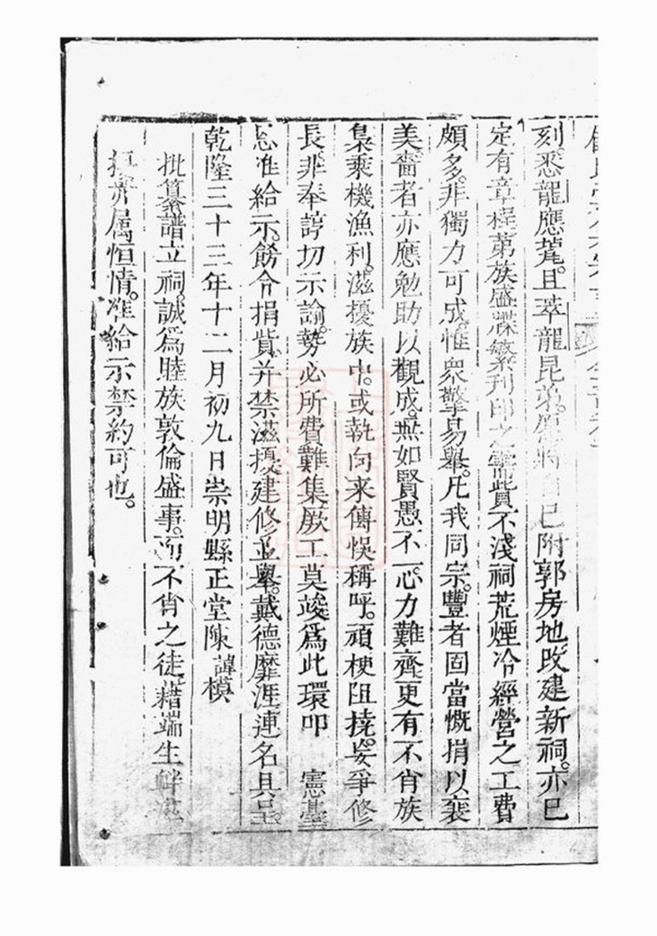 刻。悉龍應萃。且萃龍昆弟。將自己附郭房地。改建新祠。亦已
定有章程。第族盛牒繁。刊印之需貲不淺。祠荒煙冷。經營之工費
頗多。非獨力可成。惟衆擎易舉。凡我同宗。豐者固當慨捐以襄
美。嗇者亦應勉助以觀成。無如賢愚不一。心力難齊。更有不肖族
梟。乘機漁利。滋擾族中。或執向来傳悞稱呼。頑梗阻撓。妄爭修
長。非奉諄切示諭。勢必所費難集。厥工莫竣。爲此環叩 憲臺
恩准給示。飭令捐貲。并禁滋擾。建修並舉。戴德靡涯。連名具呈。
乾隆三十三年十二月初九日崇明縣正堂陳諱模
批纂譜立祠。誠爲睦族敦倫盛事。而不肖之徒。藉端生衅滋
擾。亦屬恒情。准給示禁約可也。